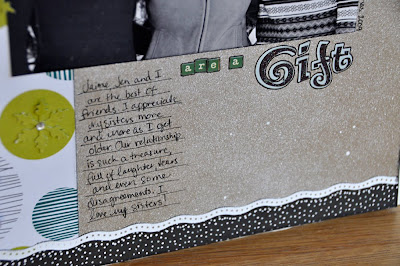 are a
Gift
Jaime, Jen and I
are the best of
friends. I appreciate
my sisters more
and more as I get
older. Our relationship
is such a treasure,
full of laughter, tears
and even some
disagreements. I
love my sisters!